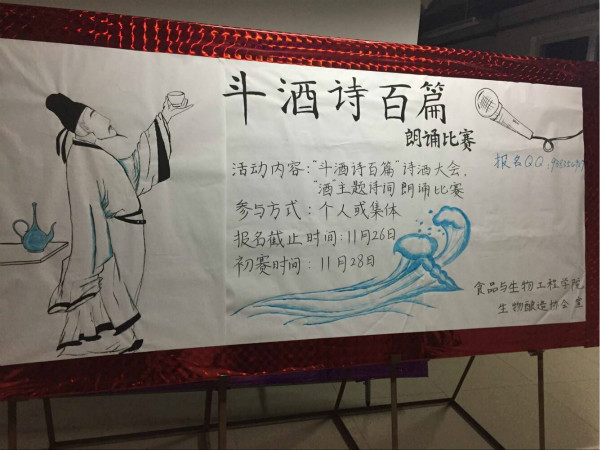 斗酒诗百篇
朗诵比赛
报名QQ:
活动内容:“斗酒诗百篇”诗酒大会.
“酒”主题诗词朗诵比赛
参与方式:个人或集体
报名截止时间:11月26日
初赛时间:11月28日
食品与生物工程学院
生物酿造协会宣